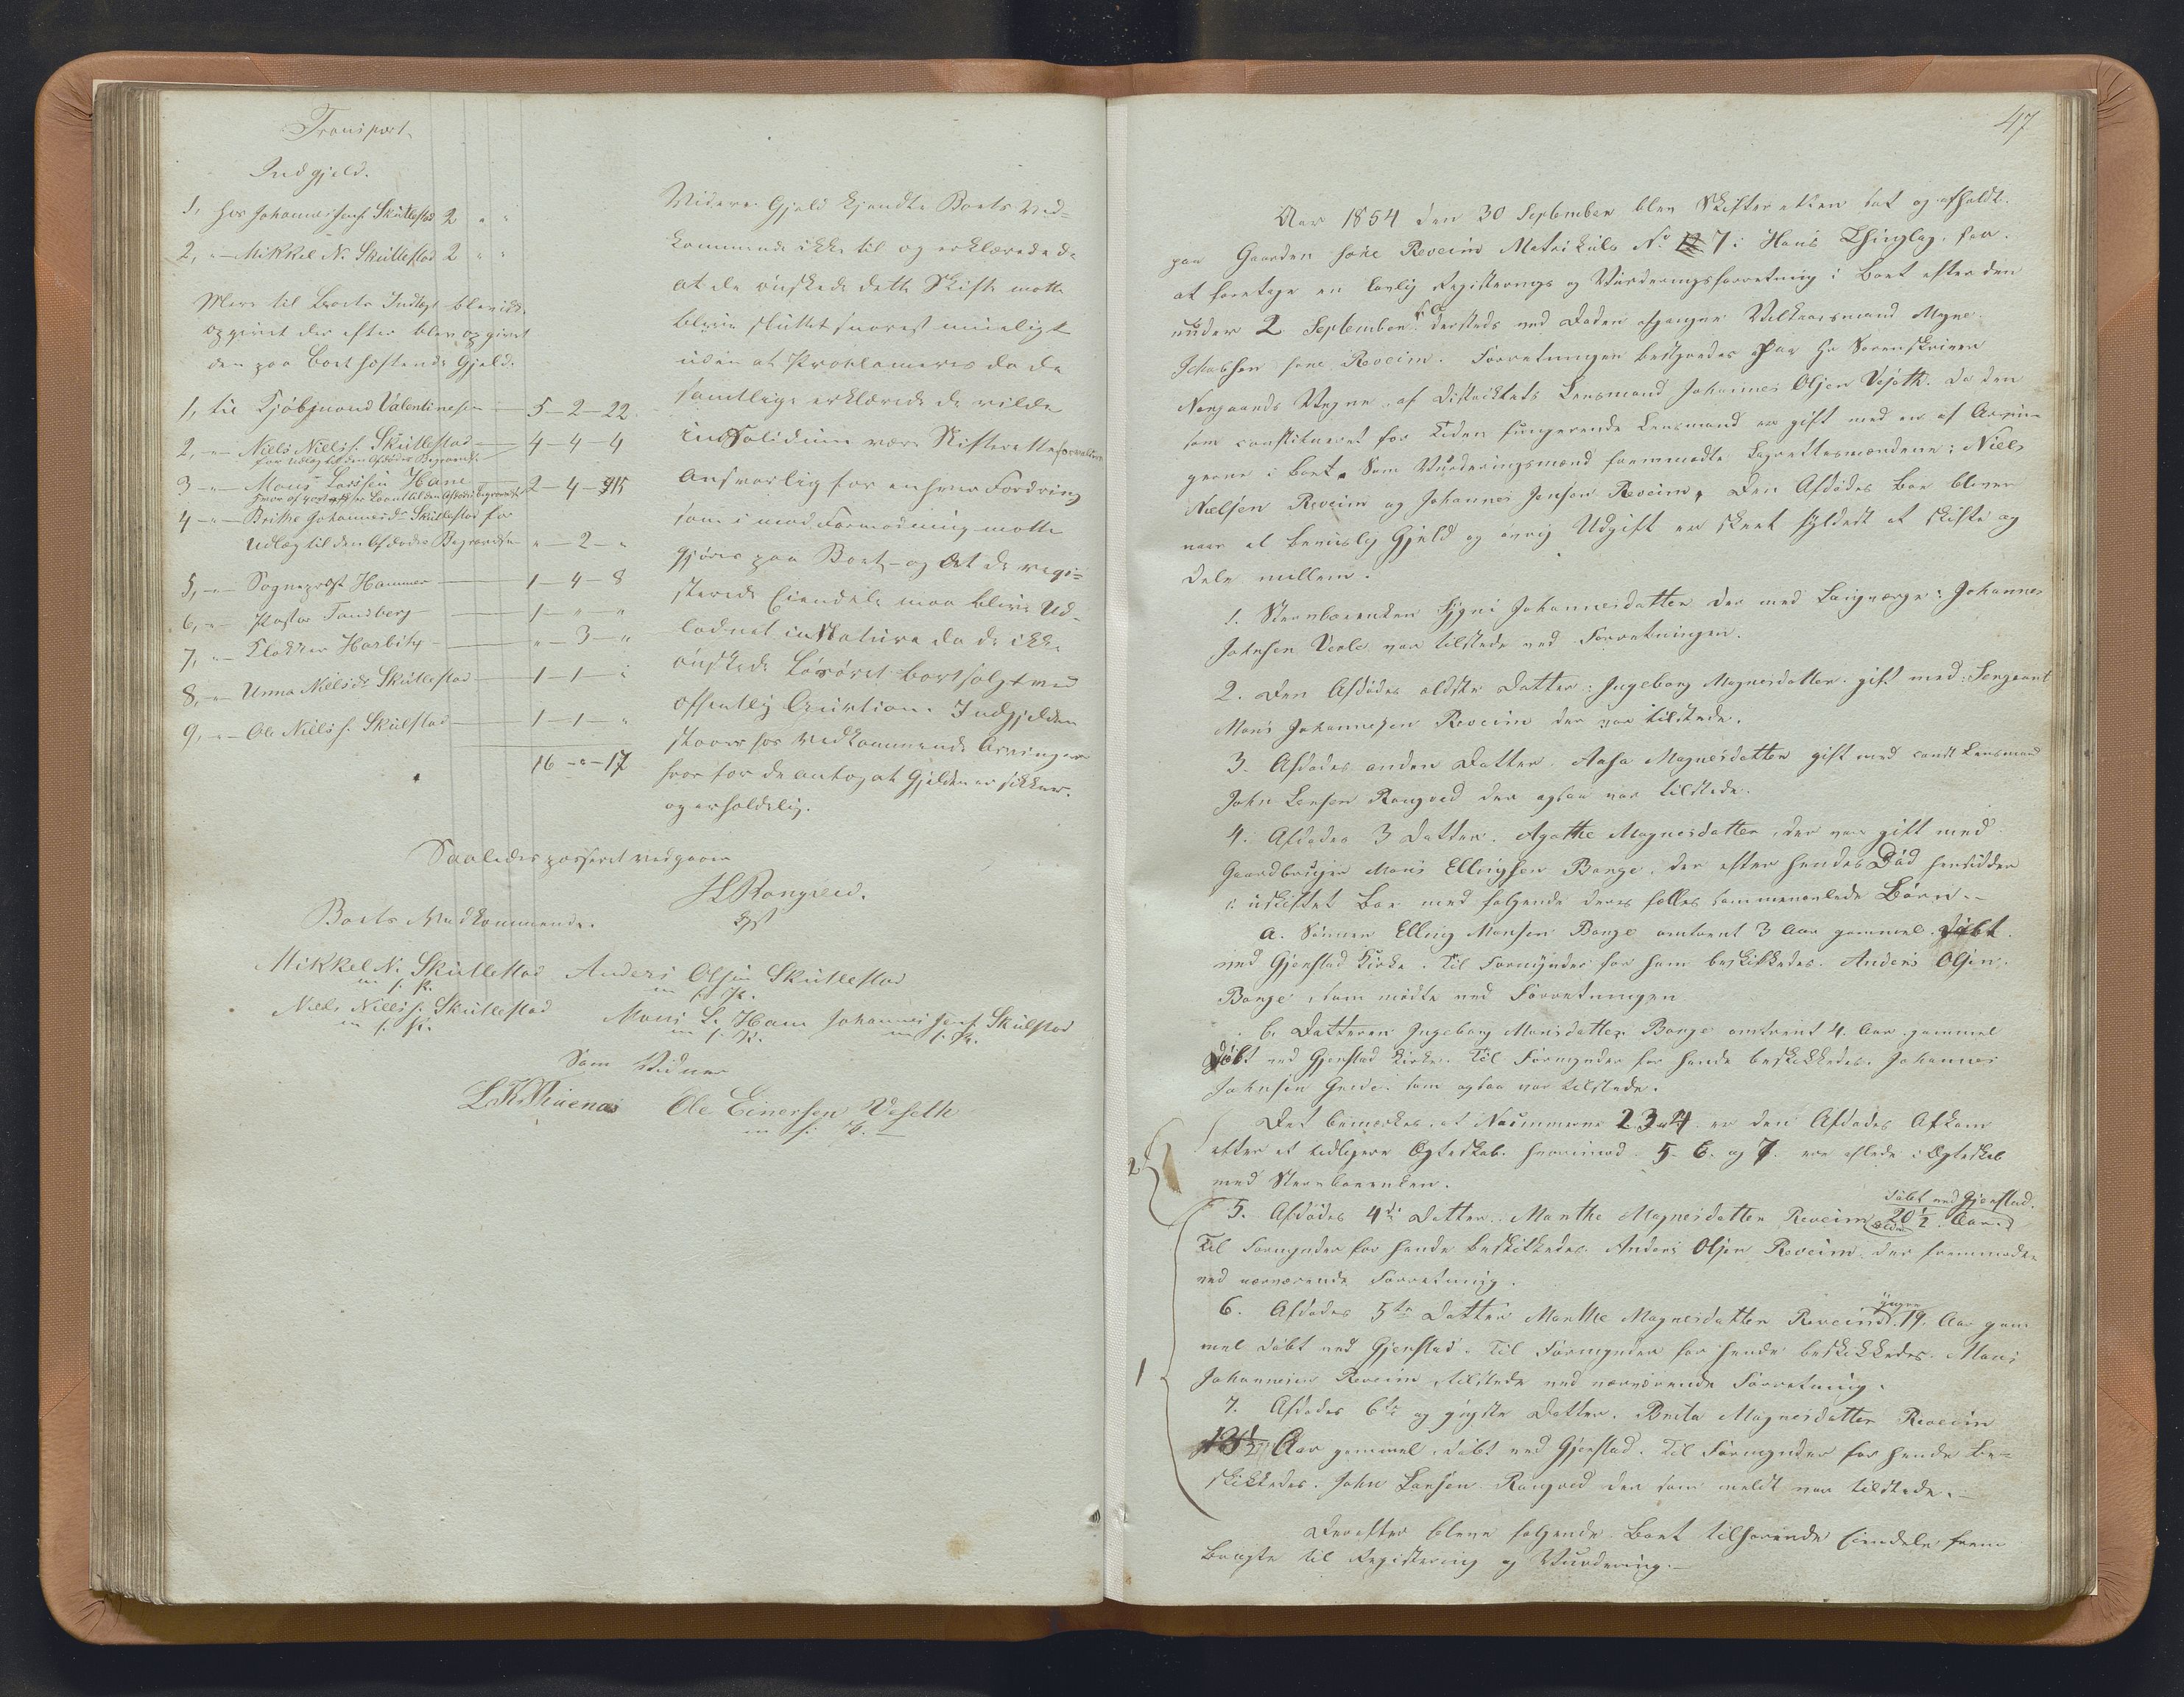 Transport
Indgjeld.
1, hos Johannes Jens. Skutlestad 2 " "
2, "— Mikkel N. Skutlestad 2 " "
Mere til Boets Indtægt blev ikke
opgivet der efter blev opgivet
den paa Boet heftende Gjeld.
1, til Kjøbmand Valentinsen — 5-2-22.
2, "— Niels Niels. Skutlestad — 4-4-4
for Udlæg til den Afdødes Begravelse
3 "— Mons Larsen Hane 2-4-15
4 "— Brithe Johannesdr Skutlestad for
Udlæg til den Afdødes Begravelse "-2-"
5, "— Sogneprest Hammer — 1-4-8
6, "— Pastor Tandberg — 1-"-"
7, "— Klokker Harbitz — "-3-"
8, "— Anna Nielsdr Skutlestad — 1-1-"
9, "— Ole Niels s. Skutlstad — 1-1-"
16-"-17
Videre Gjeld kjendte Boets Ved-
kommende ikke til og erklærede de
at de ønskede dette Skifte maatte
blive sluttet snarest mueligt
uden at Proklameres da de
samtlige erklærede de vilde
in Solidum være Skifteretteforvalteren
Ansvarlig for enhver Fordring
som i mod Formodning maatte
gjøres paa Boet — og at de regi-
strerede Eiendele maa blive Ud-
lodnet in Natura da de ikke
ønskede Løsøret bortsolgt ved
offentlig Auction. Indgjelden
staaer hos Vedkommende Arvinger
hvor for de antog at Gjelden er sikker
og erholdelig.
Saaledes passeret vedgaaer
JL Rongved.
Kst
Boets Vedkommende.
Mikkel N. Skutlestad Anders Olsen Skutlestad
m. f. P. m. f. P.
Niels Niels s. Skutlestad Mons L. Hane Johannes Jens. Skulstad
m. f. P. m. f. P. m. f. P.
Som Vidner
Ole Einersen Veseth
m. f. P.
47
Aar 1854 den 30 September blev Skifteretten sat og afholdt
paa Gaarden søre Reveim Matrikuls No 7 i Hans Thinglag for
at foretage en lovlig Registerings og Vurderingsforretning i Boet efter den
under 2 September d. A. dersteds ved Døden afgangne Velkaarsmand Magne
Jchabsen søre Reveim. Forretningen bestyredes paa Hr Sorenskriver
Nergaards Vegne, af Distriktets Lensmand Johannes Olsen Veseth. da den
som constitueret for Tiden fungerende Lensmand er gift med en af Arvin-
gerne i Boet. Som Vurderingsmænd fremmødte Lagrettesmændene: Niels
Nielsen Reveim og Johannes Jensen Reveim. Den Afdødes Boe bliver
naar al beviislig Gjeld og øvrig Udgift er skeet fyldest at skifte og
dele mellem:
1. Stervboenken Sygni Johannesdatter der med Laugværge: Johannes
Johnsen Verle var tilstede ved Forretningen.
2. Den Afdødes ældste Datter: Ingeborg Magnesdatter gift med: Sergeant
Mons Johannesen Reveim der var tilstede.
3. Afdødes anden Datter. Aasa Magnesdatter gift med const Lensmand
John Larsen Rongved der ogsaa var tilstede.
4. Afdødes 3 Datter. Agathe Magnesdatter, der var gift med
Gaardbruger Mons Ellingsen Bange, der efter hendes Død hensidder
i uskiftet Boe med følgende deres fælles sammenavlede Børn.—
a. Sønnen Elling Monsen Bange omtrent 3 Aar gammel. Døbt
ved Gjerstad Kirke. Til Formynder for ham beskikkedes. Anders Olsen
Bange, som mødte ved Forretningen
b. Datteren Ingeborg Monsdatter Bange omtrent 4. Aar gammel
Døbt ved Gjerstad Kirke. Til Formynder for hende beskikkedes. Johannes
Johnsen som ogsaa var tilstede.
Det bemærkes, at Nummerne 2 3 & 4 er den Afdødes Afkom
2
efter et tidligere Ægteskab. hvorimod 5. 6. og 7. ere aflede i Ægteskab
med Stervboenken.
døbt ved Gjerstad.
5. Afdødes 4de Datter. Marthe Magnesdatter Reveim ældre 20½ Aar
Til Formynder for hende beskikkedes. Anders Olsen Reveim. der fremmødte
ved nærværende Forretning.
yngre
6. Afdødes 5te Datter Marthe Magnesdatter Reveim 19. Aar gam-
mel døbt ved Gjerstad. Til Formynder for hende beskikkedes. Mons
1
Johannesen Reveim, tilstede ved nærværende Forretning.
7. Afdødes 6te og yngste Datter. Brita Magnesdatter Reveim
13½ Aar gammel, døbt ved Gjerstad. Til Formynder for hende be-
skikkedes. John Larsen Rongved der som meldt var tilstede.—
Derefter bleve følgende Boet tilhørende Eiendele frem
bragte til Registering og Vurdering.—